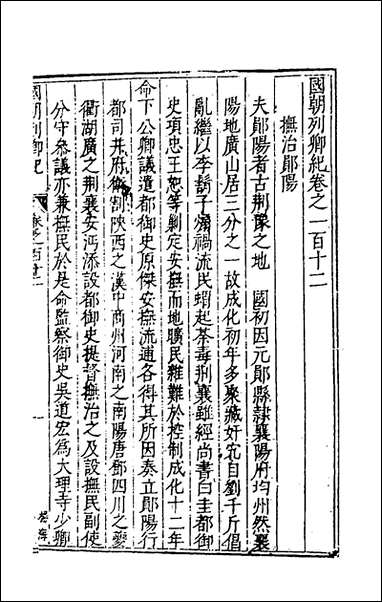 國朝列卿紀卷之一百十二
撫治鄖陽
夫鄖陽者古荆豫之地　國初因元鄖縣隷襄陽府均州然襄
陽地廣山居三分之一故成化初年多聚藏奸宄自劉千斤倡
亂繼以李鬍子嘯禍流民蝟起荼毒荆襄雖經尚書白圭都御
史項忠王恕等勦定安撫而地曠民雜難於控制成化十二年
命下公卿議遣都御史原傑安撫流逋各得其所因奏立鄖陽行
都司并府衛割陝西之漢中商州河南之南陽唐鄧四川之夔
衢湖廣之荆襄安沔添設都御史提督撫治之及設撫民副使
分守叅議亦兼撫民於是命監察御史吳道宏為大理寺少卿
國朝列卿紀
卷之一百十二
一